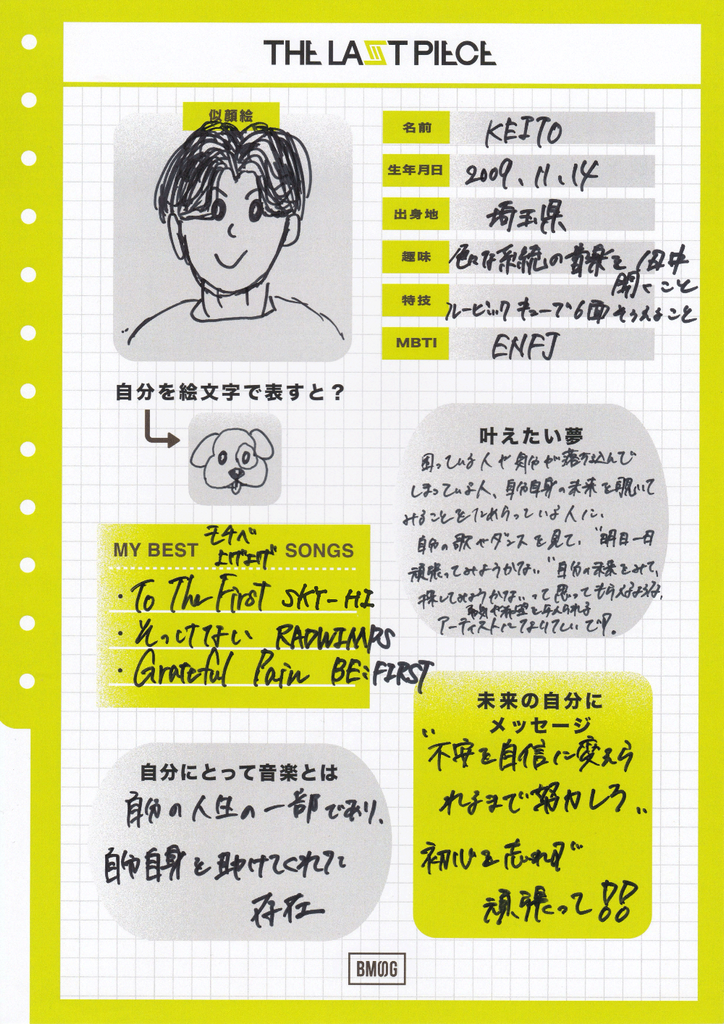 THE LAST PIECE
似顔絵
名前 KEITO
生年月日 2009.11.14
出身地 埼玉県
趣味 色々な系統の音楽を1日中
聞くこと
特技 ルービックキューブ6面そろえること
MBTI ENFJ
自分を絵文字で表すと?
叶えたい夢
困っている人や自分が落ち込んで
しまっている人、自分自身の未来を覗いて
みることをためらっている人に、
自分の歌やダンスを見て、"明日一日
頑張ってみようかな" "自分の未来をみて、
探してみようかな"って思ってもらえるような、
勇気や希望を与えられる
アーティストになりたいです。
MY BEST モチベ上げ上げ SONGS
・To The First SKY-HI
・そっけない RADWIMPS
・Grateful Pain BE:FIRST
未来の自分に
メッセージ
"不安を自信に変えら
れるまで努力しろ"
初心を忘れず
頑張って!!
自分にとって音楽とは
自分の人生の一部であり、
自分自身を助けてくれた
存在
BMSG